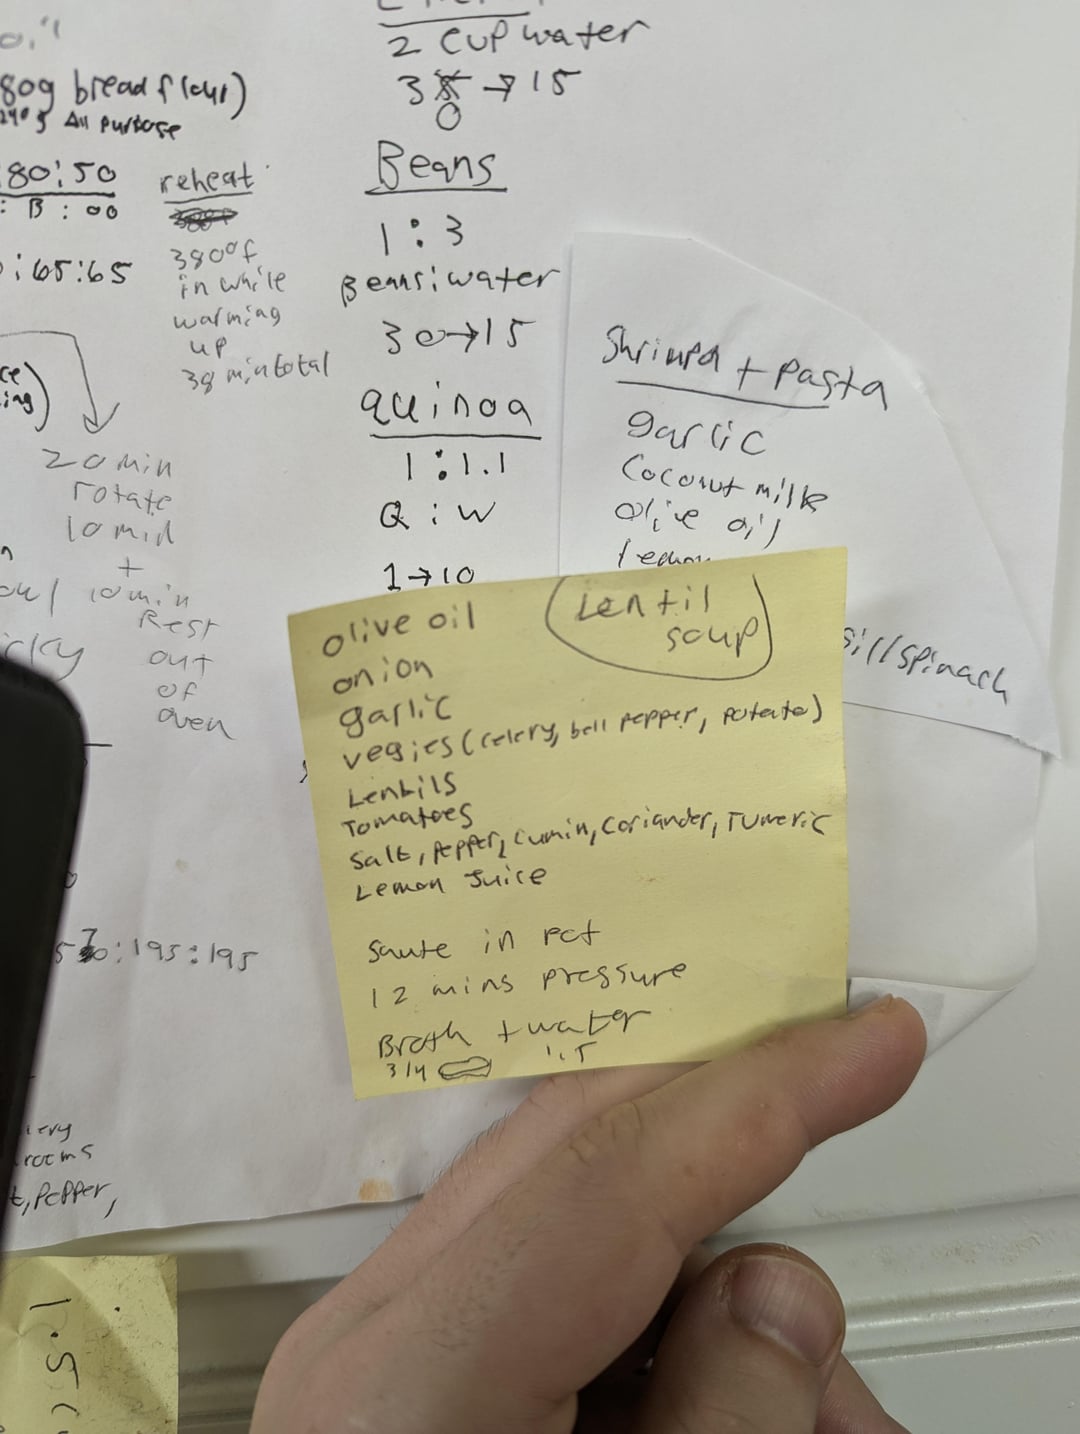 oil
80g bread flour)
240g All purpose
:80:50
: B : 00
:65:65
reheat
380°f
in while
warming
up
38 min total
20 min
rotate
10 min
+
10 min
Rest
out
of
oven
2 cup water
30 → 15
Beans
1:3
Beans:water
30→15
quinoa
1:1.1
Q:W
1→10
Shrimp + pasta
garlic
Coconut milk
olive oil
lemon
sill/spinach
Lentil
soup
olive oil
onion
garlic
vegies (celery, bell pepper, potato)
Lentils
Tomatoes
Salt, pepper, cumin, coriander, Tumeric
Lemon Juice
saute in pot
12 mins pressure
Broth + water
3/4 1.5
:195:195
rooms
t, pepper,
1.5